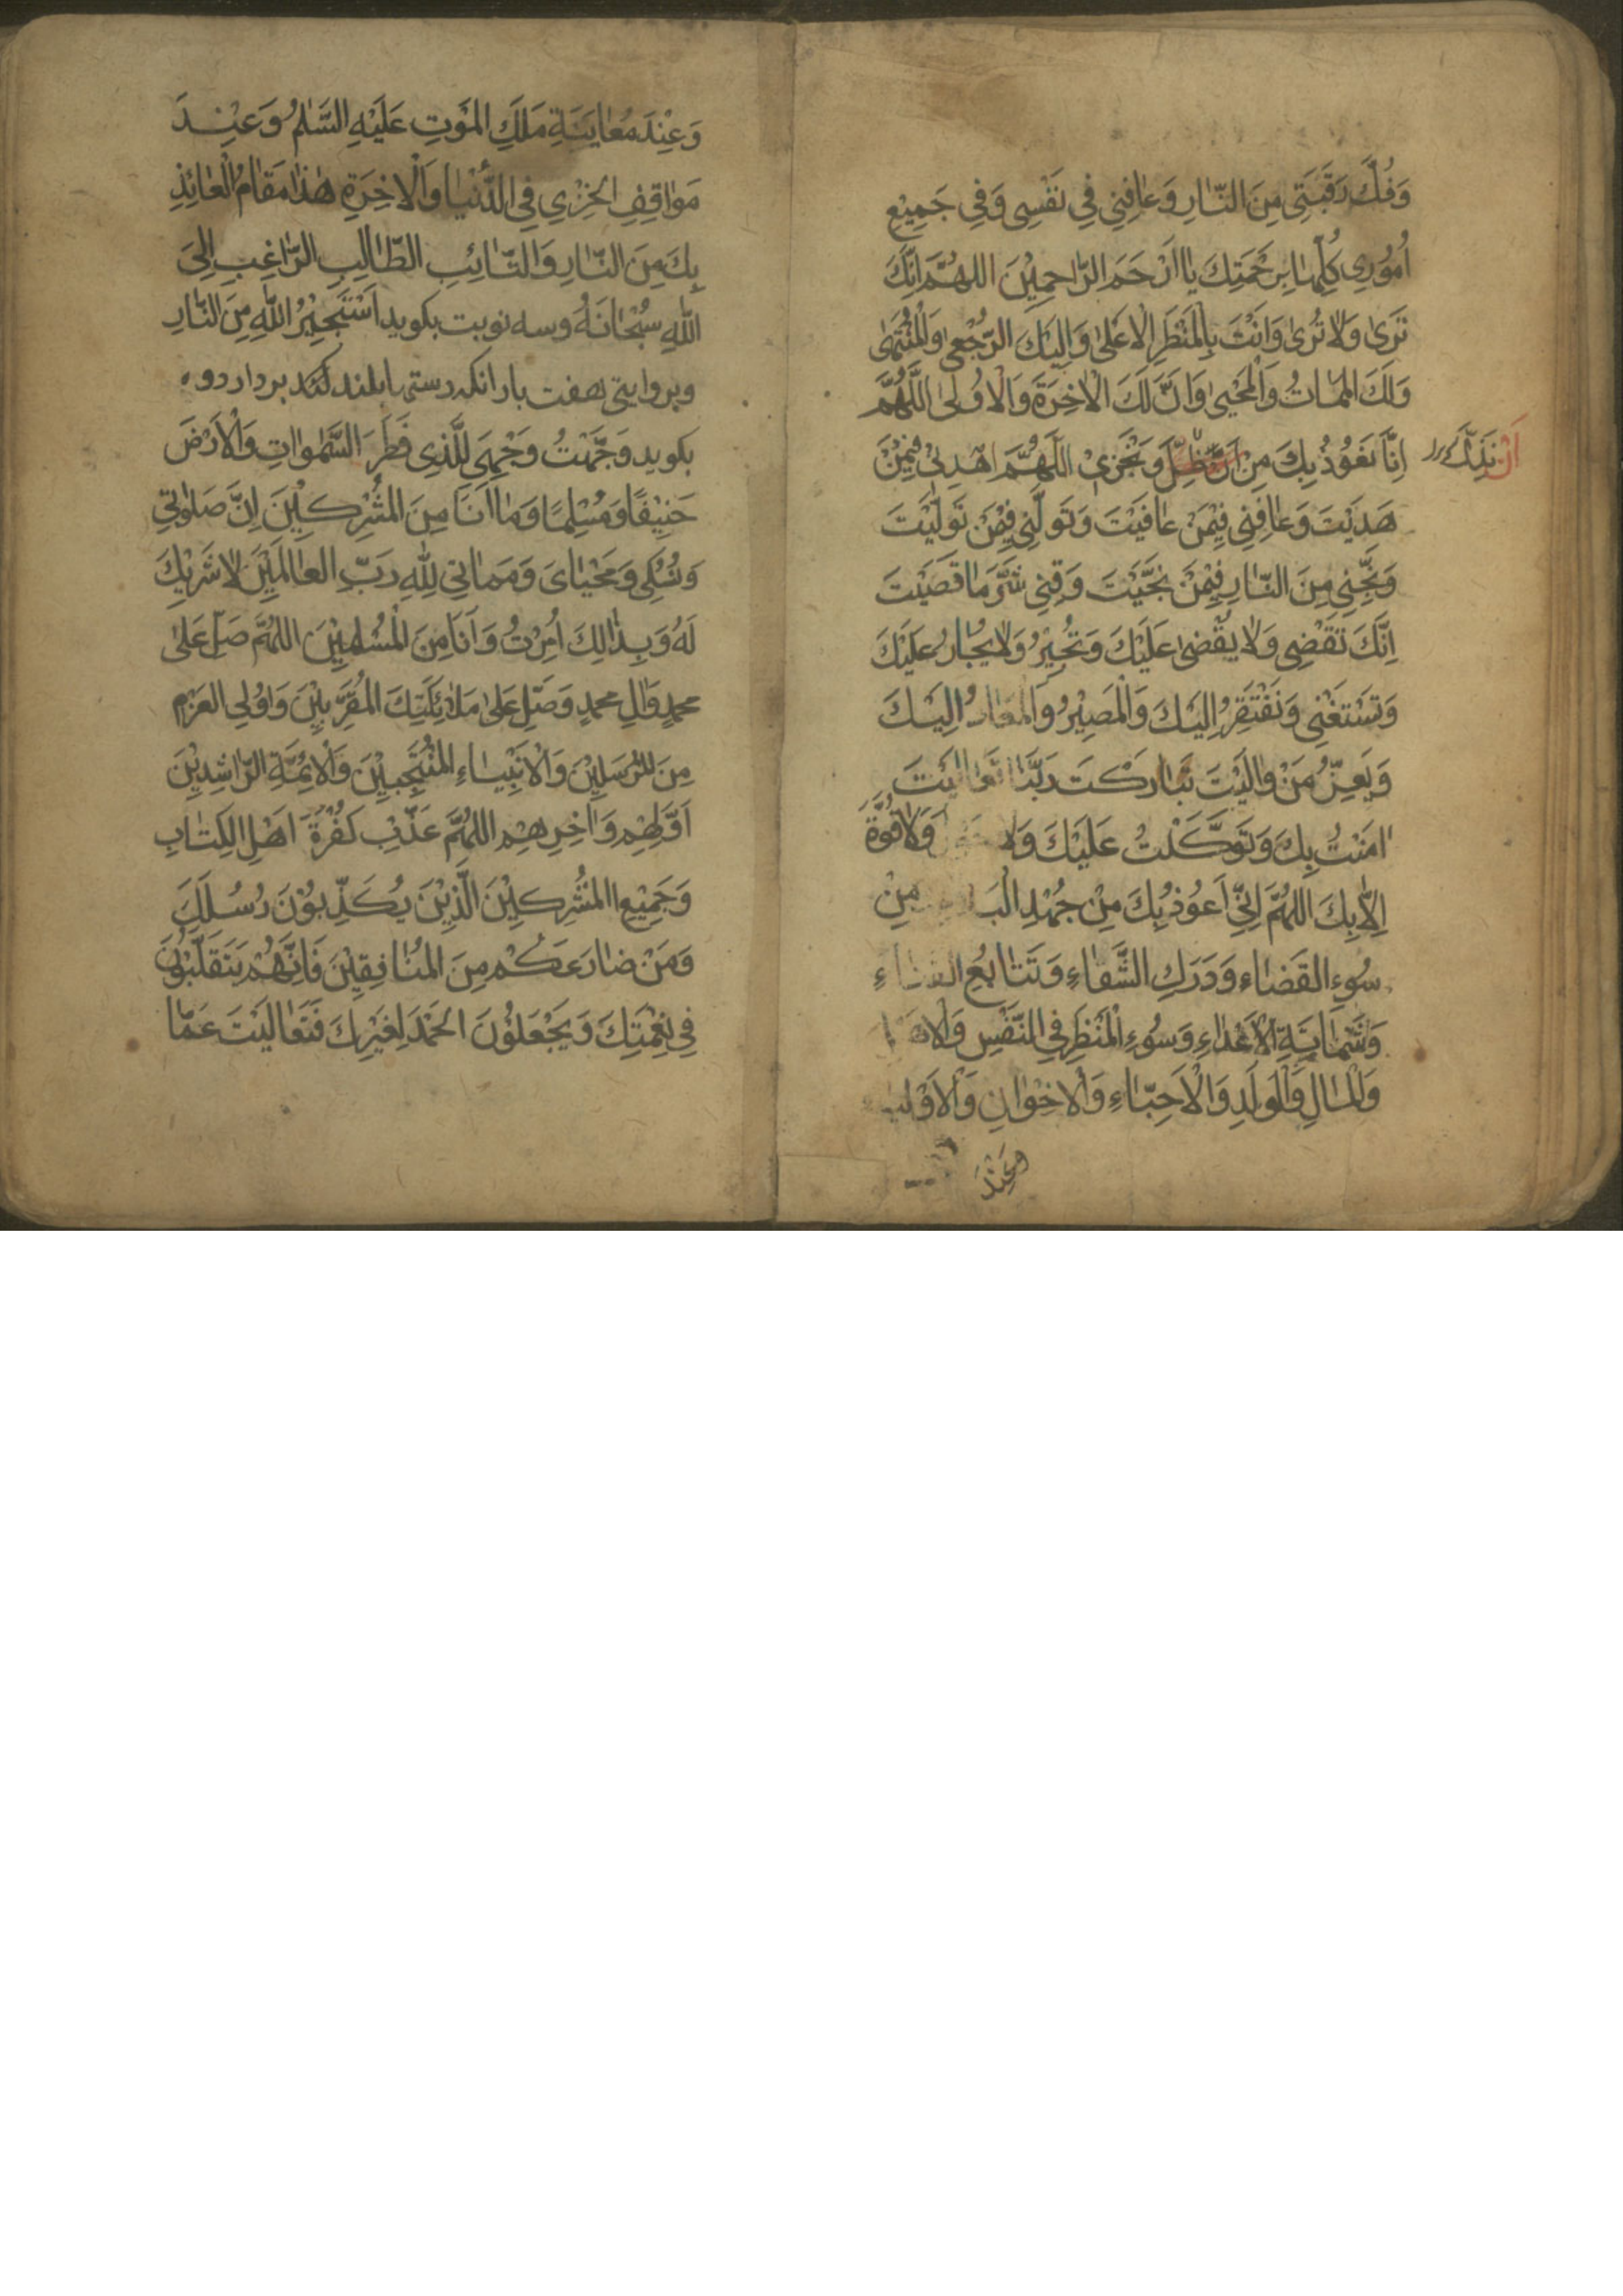 وَفُكَّ رَقَبَتِى مِنَ النَّارِ وَعَافِنِي فِي نَفْسِى وَفِي جَمِيْعِ
اُمُوُرِى كُلِّهَا بِرَحْمَتِكَ يَا اَرْحَمَ الرَّاحِمِيْنَ اللهُمَّ اِنَّكَ
تَرَىٰ وَلَا تُرىٰ وَاَنْتَ بِالْمَنْظَرِ الْاَعْلىٰ وَاِلَيْكَ الرُّجْعىٰ وَالْمُنْتَهىٰ
وَلَكَ الْمَمَاتُ وَالْمَحْيىٰ وَاِنَّ لَكَ الْاٰخِرَةَ وَالْاُوُلىٰ اللَّهُمَّ
اِنَّا نَعُوُذُ بِكَ مِنْ وَنَخْزىٰ اَللَّهُمَّ اهْدِنِىْ فِيْمَنْ
اَنْ نَذِلَّ
هَدَيْتَ وَعَافِنِي فِيْمَنْ عَافَيْتَ وَتَوَلَّنِي فِيْمَنْ تَوَلَّيْتَ
وَنَجِّنِي مِنَ النَّارِ فِيْمَنْ نَجَّيْتَ وَقِنِي شَرَّ مَا قَضَيْتَ
اِنَّكَ تَقْضِى وَلَا يُقْضىٰ عَلَيْكَ وَتُجِيْرُ وَلَا يُجَارُ عَلَيْكَ
وَتَسْتَغْنِي وَنَفْتَقِرُ اِلَيْكَ وَالْمَصِيْرُ وَالْمَعَادُ اِلَيْكَ
وَيَعِزُّ مَنْ وَالَيْتَ تَبَارَكْتَ رَبَّنَا وَتَعَالَيْتَ
اٰمَنْتُ بِكَ وَتَوَكَّلْتُ عَلَيْكَ وَلَا حَوْلَ وَلَا قُوَّةَ
اِلَّا بِكَ اللهُمَّ اِنِّي اَعُوُذُ بِكَ مِنْ جُهْدِ الْبَلَاءِ مِنْ
سُوءِ القَضَاءِ وَدَرَكِ الشَّقَاءِ وَتَتَابُعِ الفَنَاءِ
وَشَمَاتَةِ الْاَعْدَاءِ وَسُوُءِ الْمَنْظَرِ فِي النَّفْسِ وَالْاَهْلِ
وَالْمَالِ وَالْوَلَدِ وَالْاَحِبَّاءِ وَالْاِخْوَانِ وَالْاَوْلِيَاءِ
وَعِنْدَ
وَعِنْدَ مُعَايَنَةِ مَلَكِ المَوْتِ عَلَيْهِ السَّلَمُ وَعِنْدَ
مَوَاقِفِ الخِزْيِ فِي الدُّنْيَا وَالْاٰخِرَةِ هٰذَا مَقَامُ الْعَائِذِ
بِكَ مِنَ النَّارِ وَالتَّائِبِ الطَّالِبِ الرَّاغِبِ اِلَىَ
اللّٰهِ سُبْحَانَهُ وسه نوبت بكويد اَسْتَجِيْرُ اللّٰهِ مِنَ النَّارِ
وبروايتى هفت بار انكه دستها بلند كند بردارد و
بكويد وَجَّهْتُ وَجْهِىَ لِلَّذِى فَطَرَ السَّمٰوَاتِ وَالْاَرْضَ
حَنِيْفًا وَمُسْلِمًا وَمَا اَنَا مِنَ المُشْرِكِيْنَ اِنَّ صَلوٰتِي
وَنُسُكِى وَمَحْيَاىَ وَمَمَاتِي لِلّٰهِ رَبِّ العَالَمِيْنَ لَا شَرِيْكَ
لَهُ وَبِذٰالِكَ اُمِرْتُ وَاَنَا مِنَ الْمُسْلِمِيْنَ اللهُمَّ صَلِّ عَلىٰ
محمدٍ وَاٰلِ محمدٍ وَصَلِّ عَلىٰ مَلٰئِكَتِكَ الْمُقَرَّبِيْنَ وَاوُلِي العَزمِ
مِنَ المُرْسَلِيْنَ وَالْاَنْبِيَاءِ المُنْتَجَبِيْنَ وَالْاَئِمَّةِ الرَّاشِدِيْنَ
اَوَّلِهِمِ وَاٰخِرِهِمِ اللهُمَّ عَذِّبْ كَفَرَةَ اَهْلِ الكِتَابِ
وَجَمِيْعِ المُشْرِكِيْنَ الَّذِيْنَ يُكَذِّبُوُنَ رُسُلَكَ
وَمَنْ ضَارَعَكُمْ مِنَ المُنَافِقِيْنَ فَاِنَّهُمْ يَتَقَلَّبُوُنَ
فِي نِعْمَتِكَ وَيَجْعَلُوُنَ الحَمْدَ لِغَيْرِكَ فَتَعَالَيْتَ عَمَّا